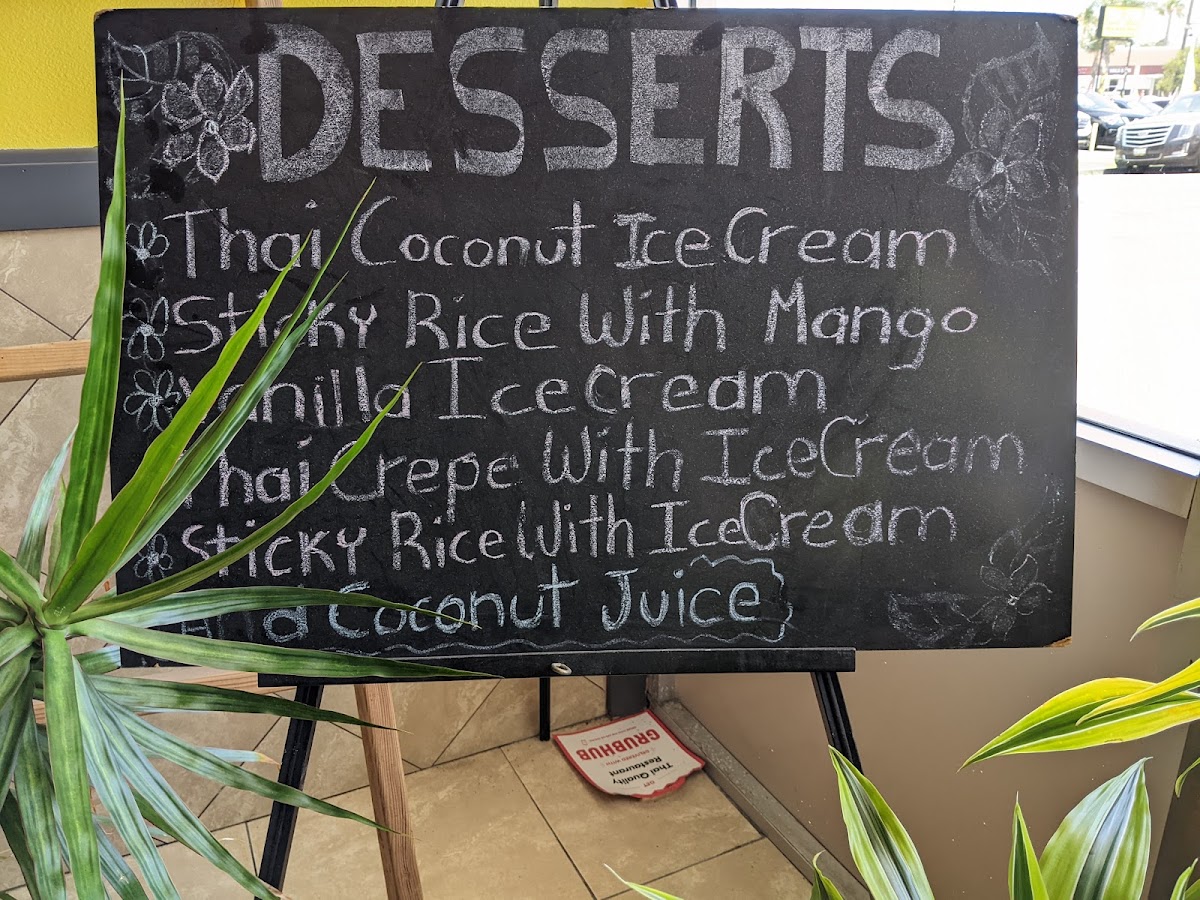 DESSERTS
Thai Coconut Ice Cream
Sticky Rice With Mango
Vanilla Ice Cream
Thai Crepe With Ice Cream
Sticky Rice With Ice Cream
Coconut Juice
GET
Thai Quality
Restaurant
GRUBHUB